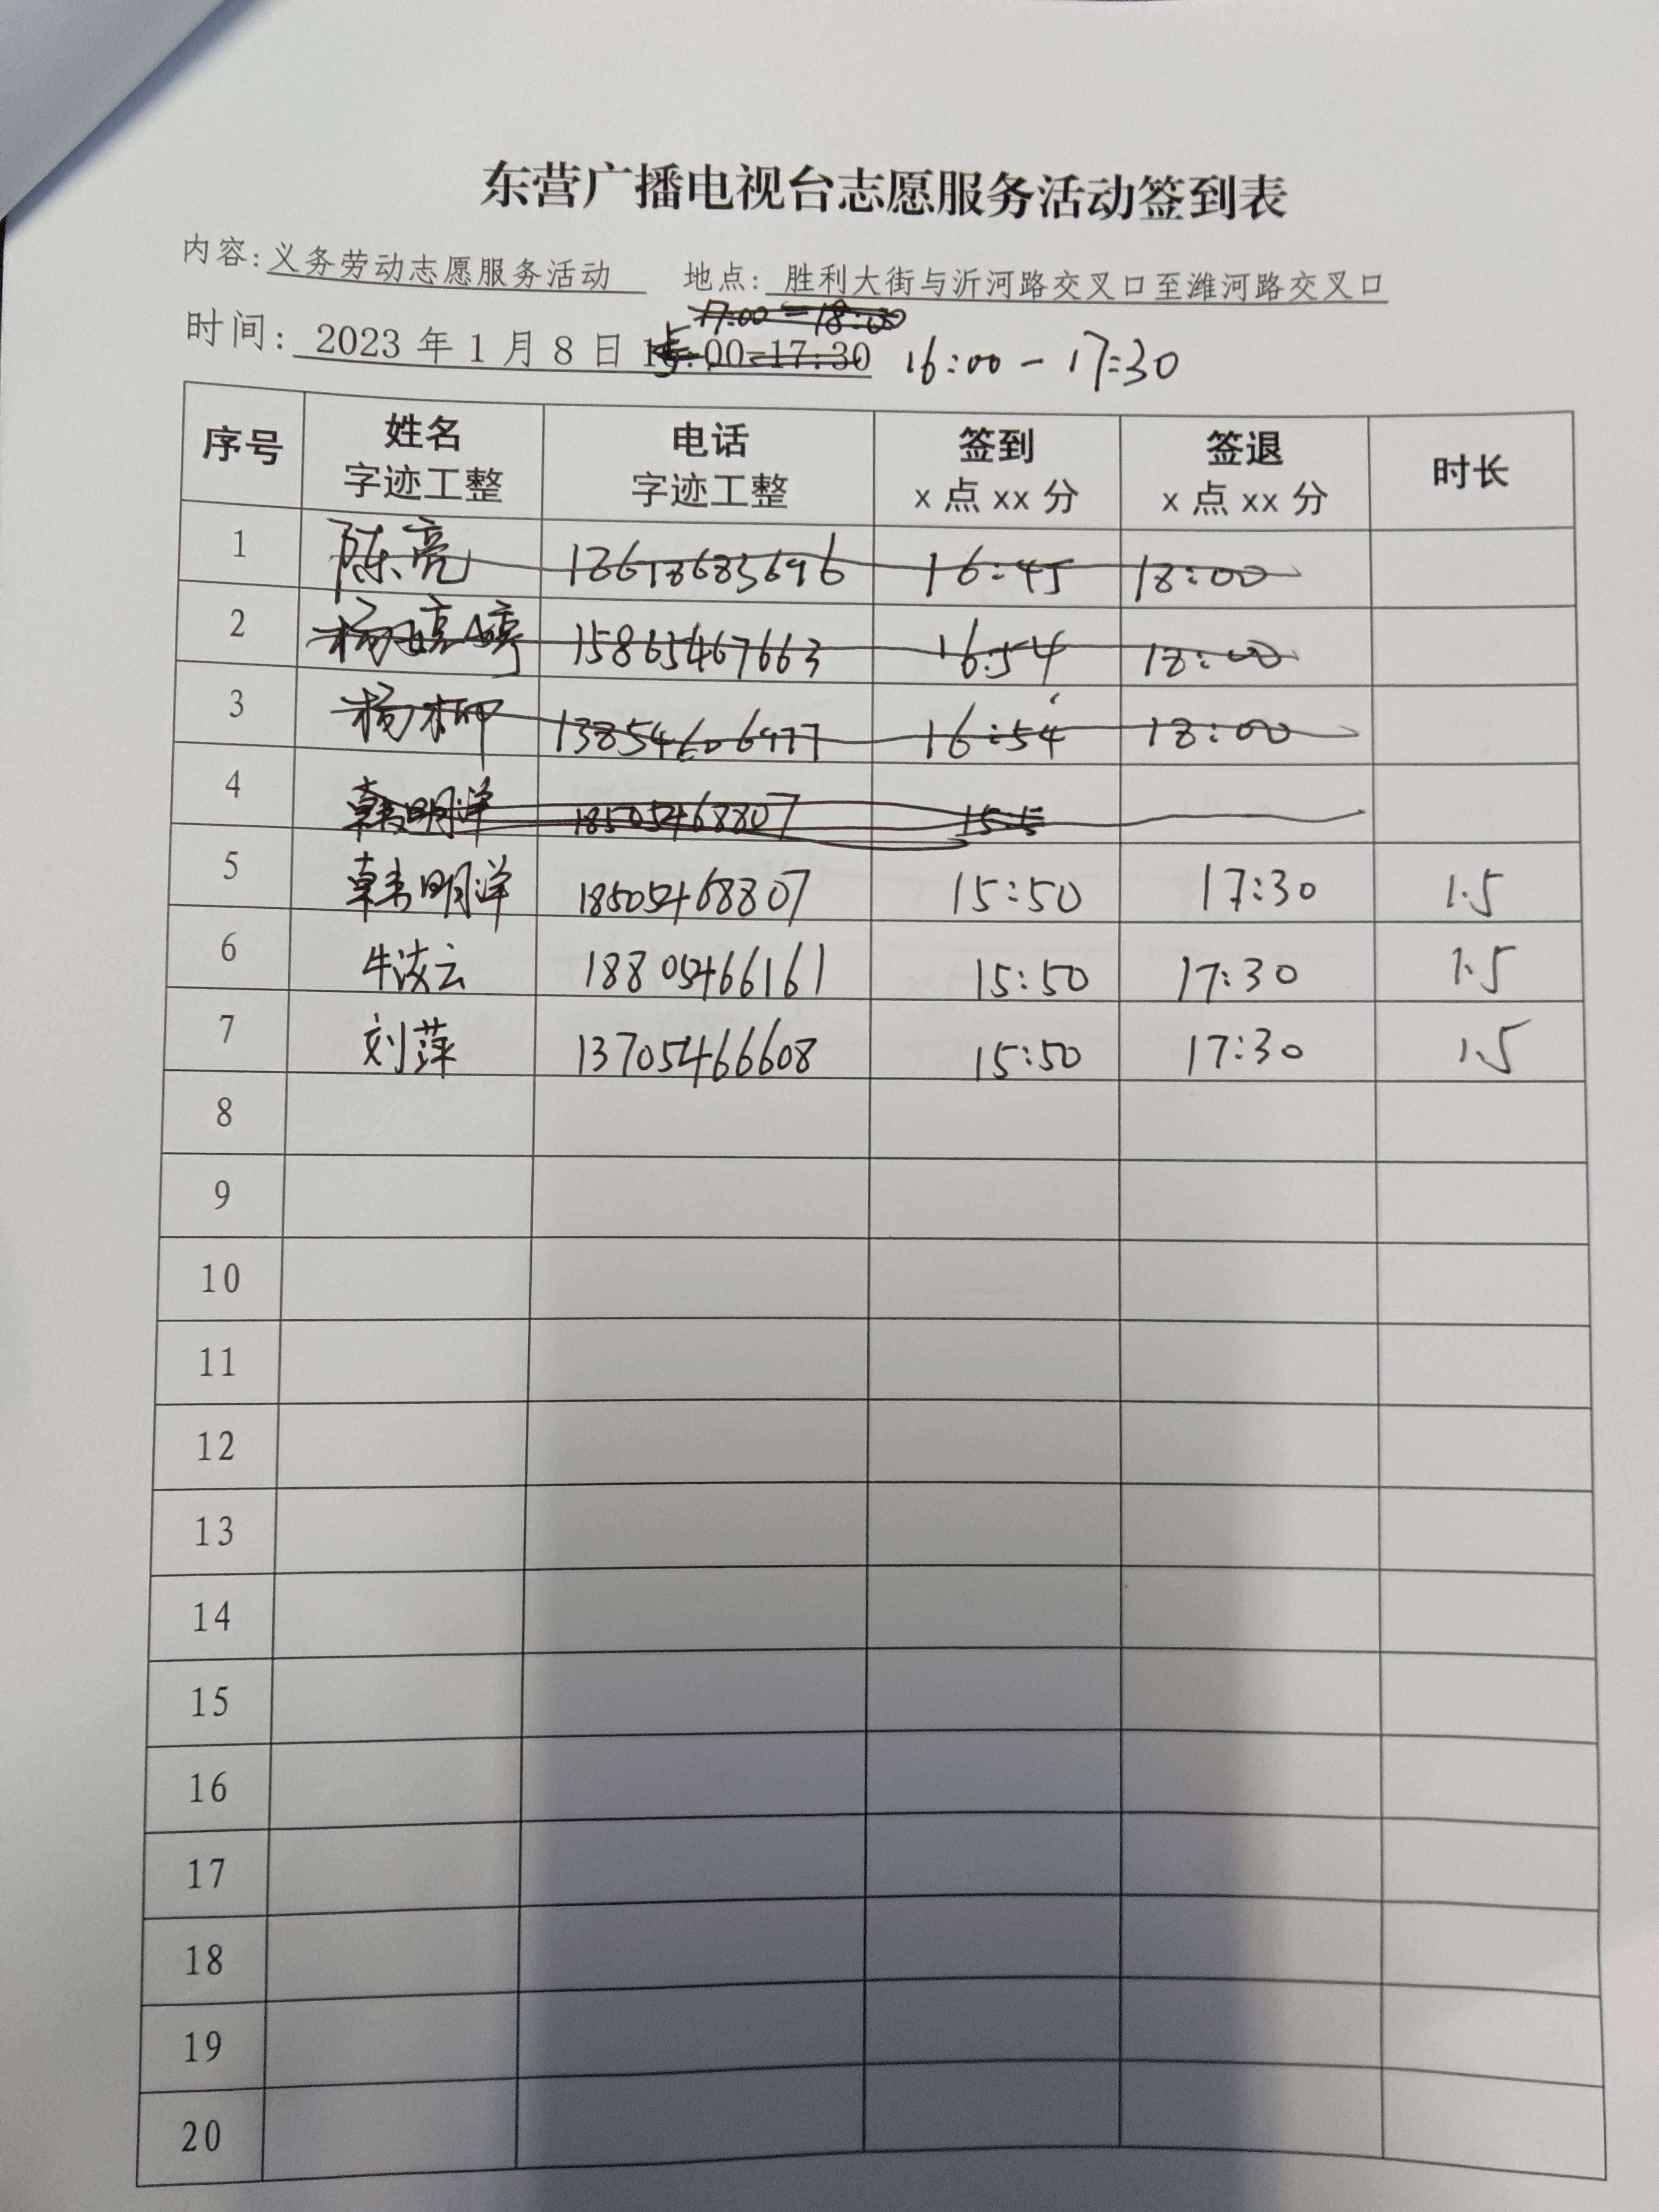 东营广播电视台志愿服务活动签到表
内容:义务劳动志愿服务活动 地点:胜利大街与沂河路交叉口至潍河路交叉口
17:00-18:00
时间:2023年1月8日 15:00-17:30 16:00-17:30
序号 姓名 字迹工整 电话 字迹工整 签到 x点xx分 签退 x点xx分 时长
1 陈亮 16:45 18:00
2 15865467663 16:54 18:00
3 杨柳 13854606977 16:54 18:00
4 韩明洋 18505468807 15:5
5 韩明洋 18505468807 15:50 17:30 1.5
6 牛凌云 18805466161 15:50 17:30 1.5
7 刘萍 13705466608 15:50 17:30 1.5
8
9
10
11
12
13
14
15
16
17
18
19
20